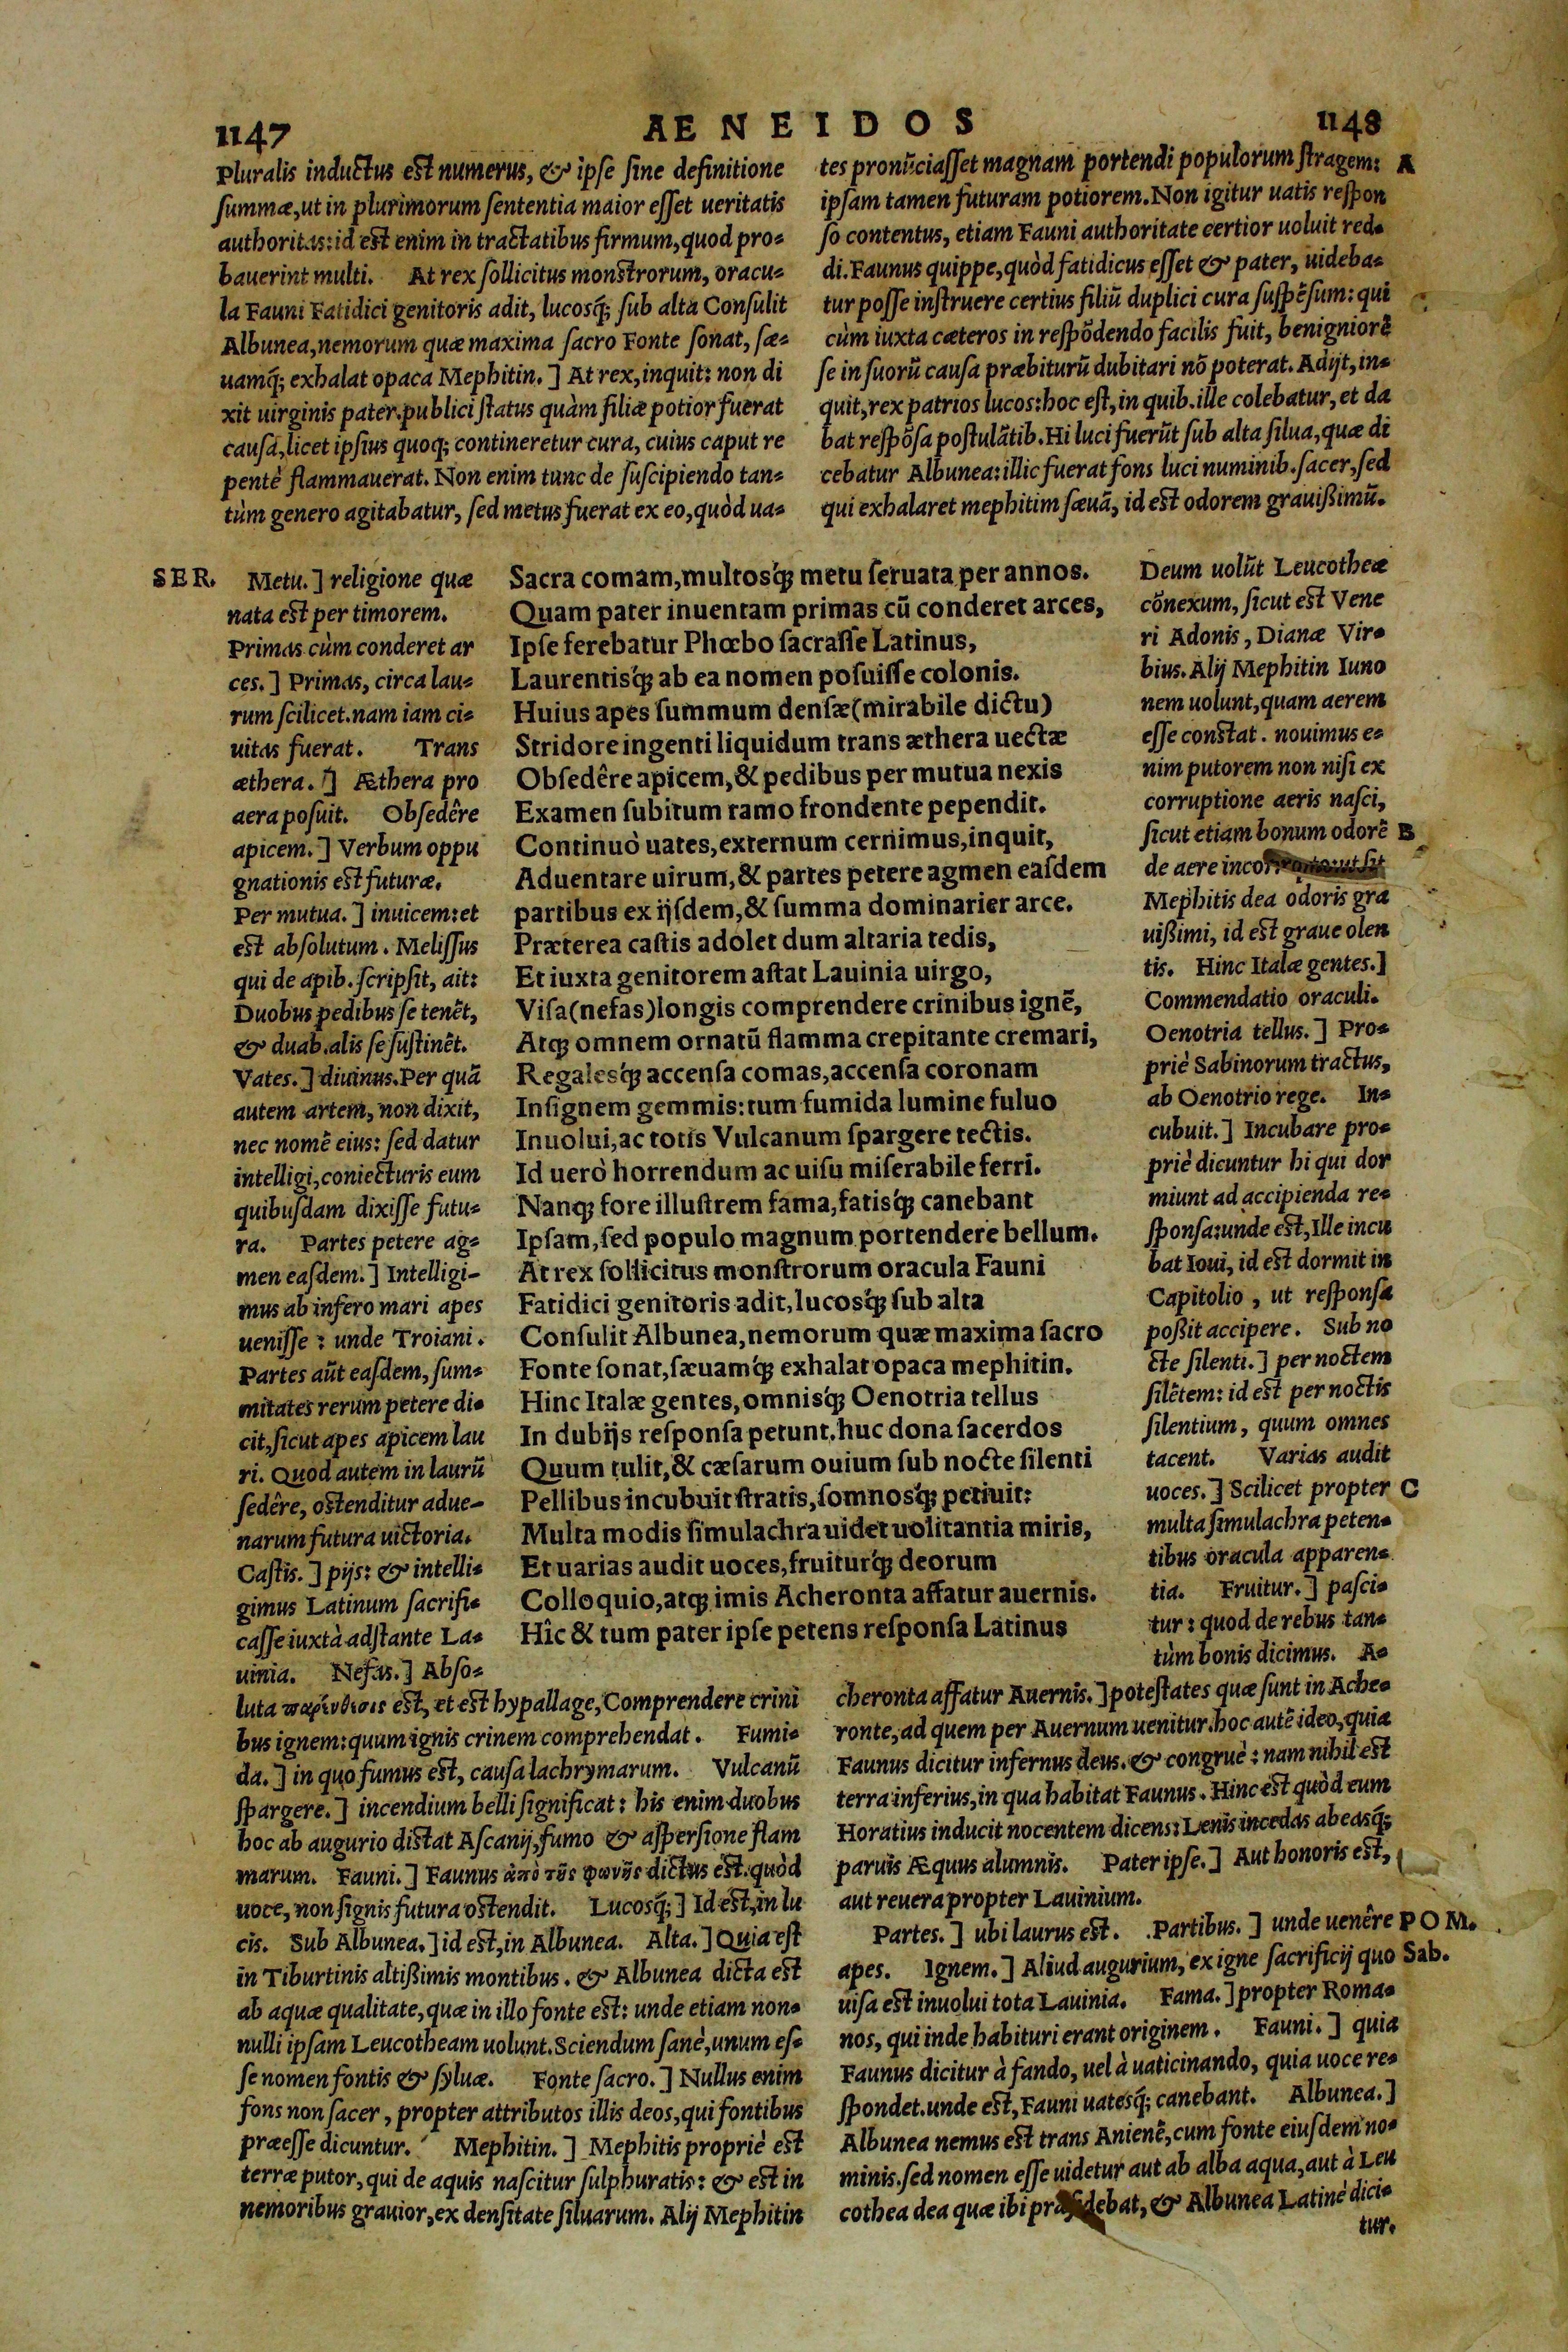 1147
AENEIDOS
1148
Pluralis inductus est numerus, & ipse sine definitione
summæ, ut in plurimorum sententia maior esset ueritatis
authoritas: id est enim in tractatibus firmum, quod pro-
bauerint multi. At rex sollicitus monstrorum, oracu-
la Fauni Fatidici genitoris adit, lucosq́; sub alta Consulit
Albunea, nemorum quæ maxima sacro Fonte sonat, sæ-
uamq́; exhalat opaca Mephitin.] At rex, inquit: non di
xit uirginis pater. publici status quàm filiæ potior fuerat
causa, licet ipsius quoq; contineretur cura, cuius caput re
pentè flammauerat. Non enim tunc de suscipiendo tan-
tùm genero agitabatur, sed metus fuerat ex eo, quòd ua-
tes pronũciasset magnam portendi populorum stragem: A
ipsam tamen futuram potiorem. Non igitur uatis respon
so contentus, etiam Fauni authoritate certior uoluit red-
di. Faunus quippe, quòd fatidicus esset & pater, uideba-
tur posse instruere certius filiũ duplici cura suspẽsum: qui
cùm iuxta cæteros in respõdendo facilis fuit, benigniorẽ
se in suorũ causa præbiturũ dubitari nõ poterat. Adijt, in-
quit, rex patrios lucos: hoc est, in quib. ille colebatur, et da
bat respõsa postulãtib. Hi luci fuerũt sub alta silua, quæ di
cebatur Albunea: illic fuerat fons luci numinib. sacer, sed
qui exhalaret mephitim sæuã, id est odorem grauißimũ.
SER. Metu.] religione quæ
nata est per timorem.
Primas cùm conderet ar
ces.] Primas, circa lau-
rum scilicet. nam iam ci-
uitas fuerat. Trans
æthera.] Æthera pro
aera posuit. Obsedêre
apicem.] Verbum oppu
gnationis est futuræ.
Per mutua.] inuicem: et
est absolutum. Melissus
qui de apib. scripsit, ait:
Duobus pedibus se tenẽt,
& duab. alis se sustinẽt.
Vates.] diuinus. Per quã
autem artem, non dixit,
nec nomẽ eius: sed datur
intelligi, coniecturis eum
quibusdam dixisse futu-
ra. Partes petere ag-
men easdem.] Intelligi-
mus ab infero mari apes
uenisse: unde Troiani.
Partes aũt easdem, sum-
mitates rerum petere di-
cit, sicut apes apicem lau
ri. Quod autem in laurũ
sedêre, ostenditur adue-
narum futura uictoria.
Castis.] pijs: & intelli-
gimus Latinum sacrifi-
casse iuxtà adstante La-
uinia. Nefas.] Abso-
Sacra comam, multosq́; metu seruata per annos.
Quam pater inuentam primas cũ conderet arces,
Ipse ferebatur Phœbo sacrasse Latinus,
Laurentisq́; ab ea nomen posuisse colonis.
Huius apes summum densæ (mirabile dictu)
Stridore ingenti liquidum trans æthera uectæ
Obsedêre apicem, & pedibus per mutua nexis
Examen subitum ramo frondente pependit.
Continuò uates, externum cernimus, inquit,
Aduentare uirum, & partes petere agmen easdem
partibus ex ijsdem, & summa dominarier arce.
Præterea castis adolet dum altaria tedis,
Et iuxta genitorem astat Lauinia uirgo,
Visa (nefas) longis comprendere crinibus ignẽ,
Atq; omnem ornatũ flamma crepitante cremari,
Regalesq́; accensa comas, accensa coronam
Insignem gemmis: tum fumida lumine fuluo
Inuolui, ac totis Vulcanum spargere tectis.
Id uerò horrendum ac uisu miserabile ferri.
Nanq; fore illustrem fama, fatisq́; canebant
Ipsam, sed populo magnum portendere bellum.
At rex sollicitus monstrorum oracula Fauni
Fatidici genitoris adit, lucosq́; sub alta
Consulit Albunea, nemorum quæ maxima sacro
Fonte sonat, sæuamq́; exhalat opaca mephitin.
Hinc Italæ gentes, omnisq́; Oenotria tellus
In dubijs responsa petunt. huc dona sacerdos
Quum tulit, & cæsarum ouium sub nocte silenti
Pellibus incubuit stratis, somnosq́; petiuit:
Multa modis simulachra uidet uolitantia miris,
Et uarias audit uoces, fruiturq́; deorum
Colloquio, atq; imis Acheronta affatur auernis.
Hîc & tum pater ipse petens responsa Latinus
Deum uolũt Leucotheæ
cõnexum, sicut est Vene
ri Adonis, Dianæ Vir-
bius. Alij Mephitin Iuno
nem uolunt, quam aerem
esse constat. nouimus e-
nim putorem non nisi ex
corruptione aeris nasci,
sicut etiam bonum odorẽ B
de aere ut sit
Mephitis dea odoris gra
uißimi, id est graue olen
tis. Hinc Italæ gentes.]
Commendatio oraculi.
Oenotria tellus.] Pro-
priè Sabinorum tractus,
ab Oenotrio rege. In-
cubuit.] Incubare pro-
priè dicuntur hi qui dor
miunt ad accipienda re-
sponsa: unde est, Ille incu
bat Ioui, id est dormit in
Capitolio, ut responsa
poßit accipere. Sub no
cte silenti.] per noctem
silẽtem: id est per noctis
silentium, quum omnes
tacent. Varias audit
uoces.] Scilicet propter C
multa simulachra peten-
tibus oracula apparen-
tia. Fruitur.] pasci-
tur: quod de rebus tan-
tùm bonis dicimus. A-
luta παρένθεσις est, et est hypallage, Comprendere crini
bus ignem: quum ignis crinem comprehendat. Fumi-
da.] in quo fumus est, causa lachrymarum. Vulcanũ
spargere.] incendium belli significat: his enim duobus
hoc ab augurio distat Ascanij, fumo & aspersione flam
marum. Fauni.] Faunus ἀπὸ τῆς φωνῆς dictus est. quòd
uoce, non signis futura ostendit. Lucosq́;] Id est, in lu
cis. Sub Albunea.] id est, in Albunea. Alta.] Quia est
in Tiburtinis altißimis montibus. & Albunea dicta est
ab aquæ qualitate, quæ in illo fonte est: unde etiam non-
nulli ipsam Leucotheam uolunt. Sciendum sanè, unum es-
se nomen fontis & syluæ. Fonte sacro.] Nullus enim
fons non sacer, propter attributos illis deos, qui fontibus
præesse dicuntur. Mephitin.] Mephitis propriè est
terræ putor, qui de aquis nascitur sulphuratis: & est in
nemoribus grauior, ex densitate siluarum. Alij Mephitin
cheronta affatur Auernis.] potestates quæ sunt in Ache-
ronte, ad quem per Auernum uenitur. hoc autẽ ideo, quia
Faunus dicitur infernus deus. & congruè: nam nihil est
terra inferius, in qua habitat Faunus. Hinc est quòd eum
Horatius inducit nocentem dicens: Lenis incedas abeasq́;
paruis Æquus alumnis. Pater ipse.] Aut honoris est,
aut reuera propter Lauinium.
Partes.] ubi laurus est. Partibus.] unde uenêre POM.
apes. Ignem.] Aliud augurium, ex igne sacrificij quo Sab.
uisa est inuolui tota Lauinia. Fama.] propter Roma-
nos, qui inde habituri erant originem. Fauni.] quia
Faunus dicitur à fando, uel à uaticinando, quia uoce re-
spondet. unde est, Fauni uatesq́; canebant. Albunea.]
Albunea nemus est trans Anienẽ, cum fonte eiusdem no-
minis. sed nomen esse uidetur aut ab alba aqua, aut à Leu
cothea dea quæ ibi præsidebat, & Albunea Latinè dici-
tur.